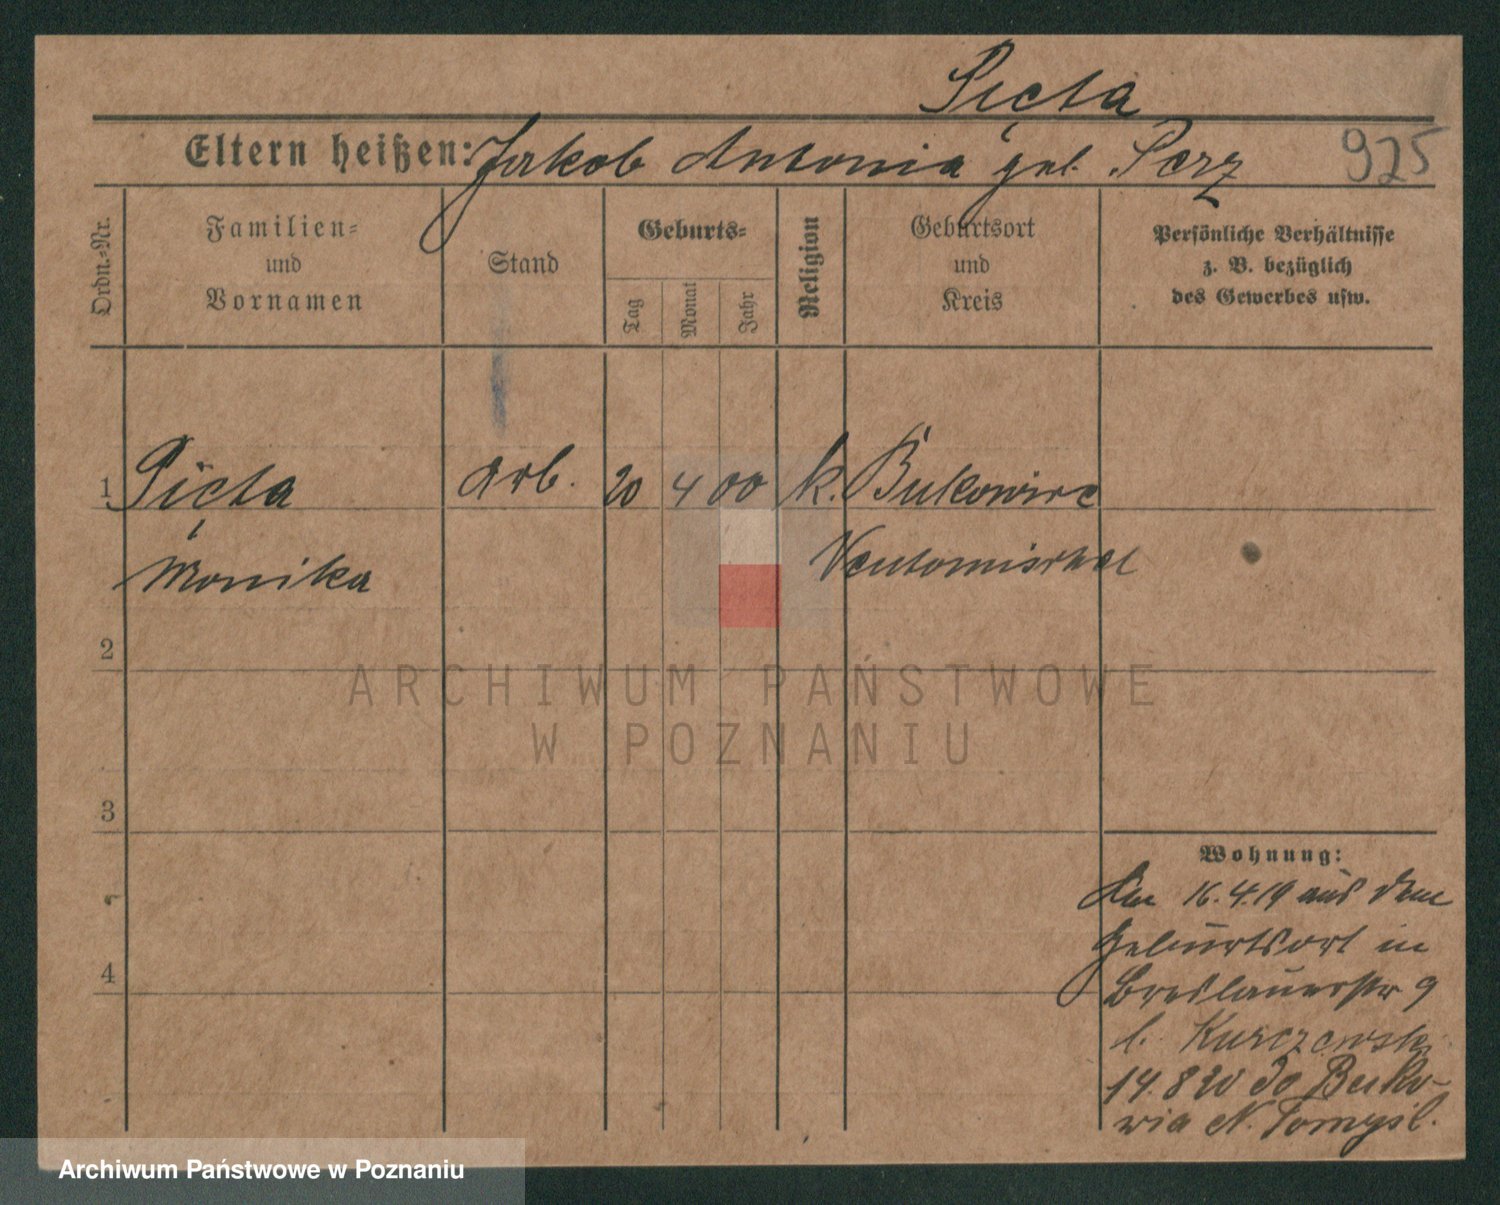 Pięta
Eltern heißen: Jakob Antonia geb. Perz
925
Ordn.-Nr.
Familien-
und
Vornamen
Stand
Geburts-
Tag
Monat
Jahr
Religion
Geburtsort
und
Kreis
Persönliche Verhältnisse
z. B. bezüglich
des Gewerbes usw.
1 Pięta Arb. 20 4 00 k. Bukowiec
Monika Neutomischel
2
3
4
Wohnung:
Am 16.4.19 aus dem
Geburtsort in
Breslauerstr 9
b. Kurczewski
14.8 20 do Buko-
wia N. Tomyśl.
ARCHIWUM PAŃSTWOWE
W POZNANIU
Archiwum Państwowe w Poznaniu